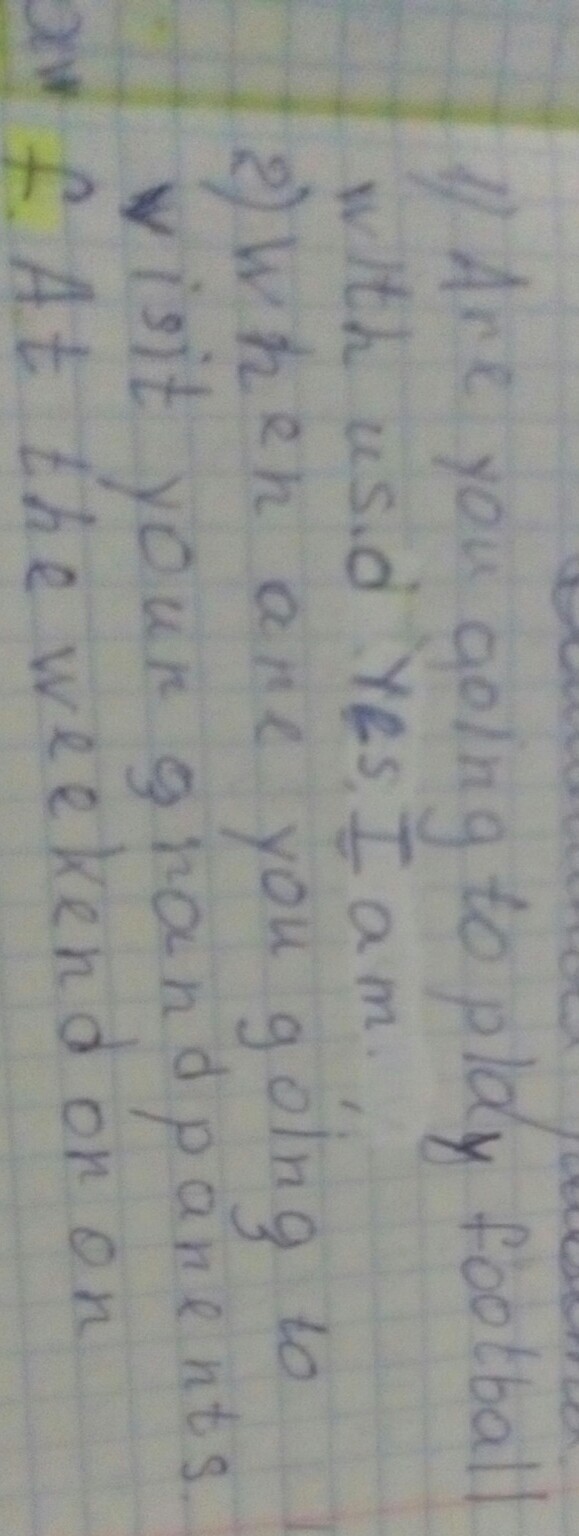 1) Are you going to play football
with us. d Yes. I am.
2) When are you going to
visit your grandparents.
f. At the weekend or on